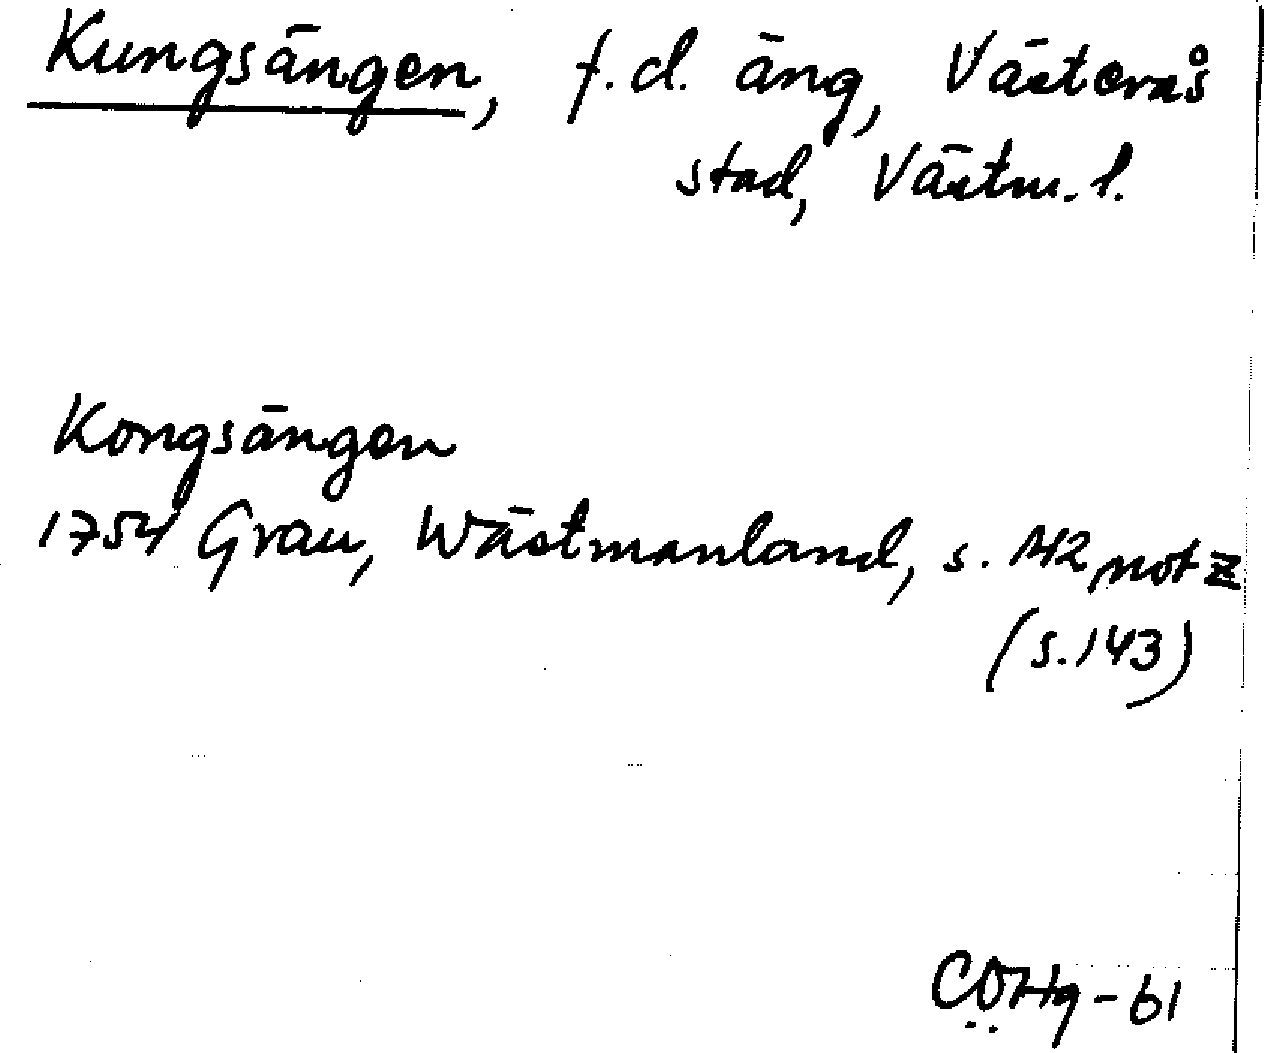 Kungsängen, f.d. äng, Västerås
stad, Västm. l.
Kongsängen
1754 Grau, Wästmanland, s. 142 not z
(s. 143)
CÖHg-61